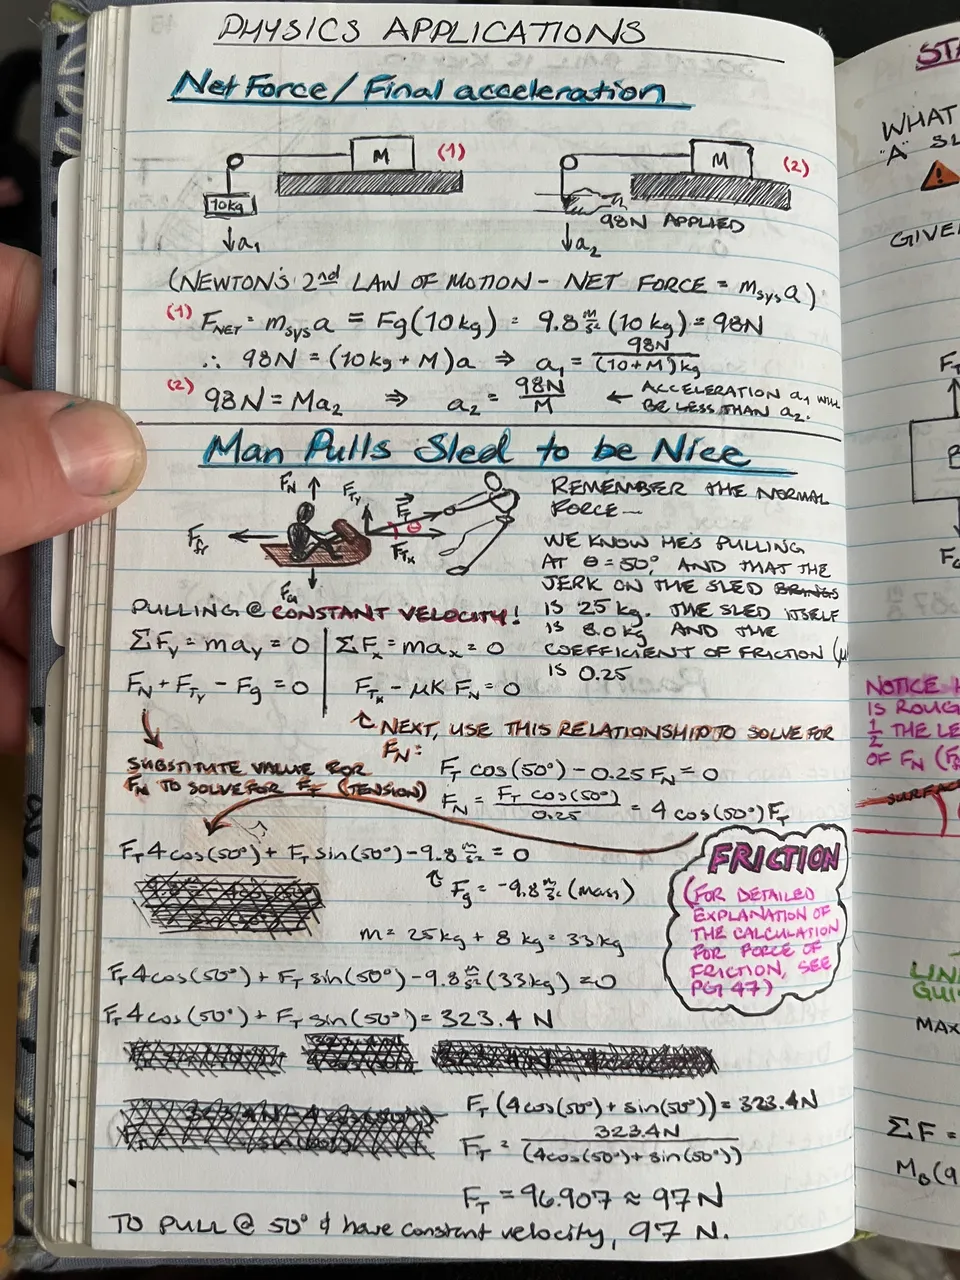 PHYSICS APPLICATIONS
Net Force / Final acceleration
M (1)
10kg
↓a₁
M (2)
98N APPLIED
↓a₂
(NEWTON'S 2nd LAW OF MOTION - NET FORCE = m_sys a)
(1) F_NET = m_sys a = Fg(10kg) = 9.8 m/s² (10 kg) = 98N
∴ 98N = (10kg + M)a ⇒ a₁ = 98N/(10+M)kg
(2) 98N = Ma₂ ⇒ a₂ = 98N/M ← ACCELERATION a₁ WILL
BE LESS THAN a₂.
Man Pulls Sled to be Nice
F_N ↑ F_Ty F_T θ
F_fr F_Tx
F_G
REMEMBER THE NORMAL
FORCE—
WE KNOW HE'S PULLING
AT θ = 50°, AND THAT THE
JERK ON THE SLED BRINGS
IS 25 kg. THE SLED ITSELF
IS 8.0 kg AND THE
COEFFICIENT OF FRICTION (μ
IS 0.25
PULLING @ CONSTANT VELOCITY!
ΣF_y = ma_y = 0 | ΣF_x = ma_x = 0
F_N + F_Ty - Fg = 0 | F_Tx - μK F_N = 0
NEXT, USE THIS RELATIONSHIP TO SOLVE FOR
F_N:
SUBSTITUTE VALUE FOR
F_N TO SOLVE FOR F_T (TENSION)
F_T cos(50°) - 0.25 F_N = 0
F_N = F_T cos(50°)/0.25 = 4 cos(50°)F_T
F_T 4cos(50°) + F_T sin(50°) - 9.8 m/s² = 0
Fg = -9.8 m/s² (mass)
m = 25kg + 8 kg = 33kg
F_T 4cos(50°) + F_T sin(50°) - 9.8 m/s² (33kg) = 0
F_T 4cos(50°) + F_T sin(50°) = 323.4 N
FRICTION
(FOR DETAILED
EXPLANATION OF
THE CALCULATION
FOR FORCE OF
FRICTION, SEE
PG 47)
F_T (4cos(50°) + sin(50°)) = 323.4N
F_T = 323.4N/(4cos(50°) + sin(50°))
F_T = 96.907 ≈ 97 N
TO PULL @ 50° & have constant velocity, 97 N.
STA
WHAT
"A" SL
GIVE
F_T
NOTICE
IS ROUG
1/2 THE LE
OF F_N (F
SURFAC
LIN
GUI
MAX
ΣF =